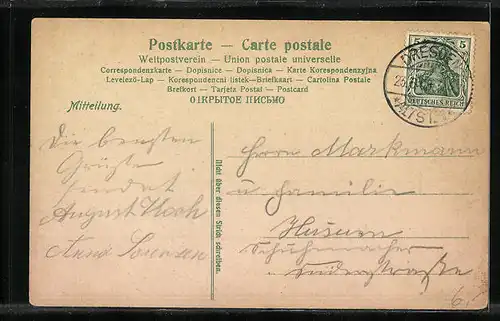 Postkarte — Carte postale
Weltpostverein — Union postale universelle
Correspondenzkarte — Dopisnice — Dopisnica — Karte Korespondenzyjna
Levelező-Lap — Korespondencni listek—Brefkaart — Cartolina Postale
Brefkort — Tarjeta Postal — Postcard
ОТКРЫТОЕ ПИСЬМО
5 5
DRESDEN
*ALTST.
DEUTSCHES REICH
Mitteilung.
Die besten
Grüße
sendet
August Koch
Anna Sorensen
Nicht über diesen Strich schreiben.
Herrn Markmann
u. Familie
Husum
Schuhmacher
Süderstraße
6.